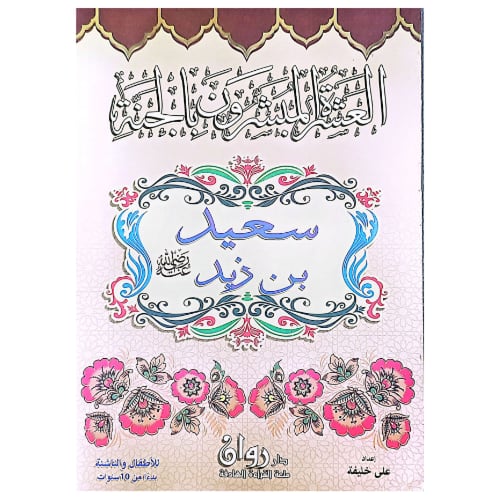 العشرة المبشرون بالجنة
سعيد
بن زيد رضي الله عنه
إعداد
على خليفة
دار روان
متعة القراءة الهادفة
للأطفال والناشئة
بدءا من 10 سنوات